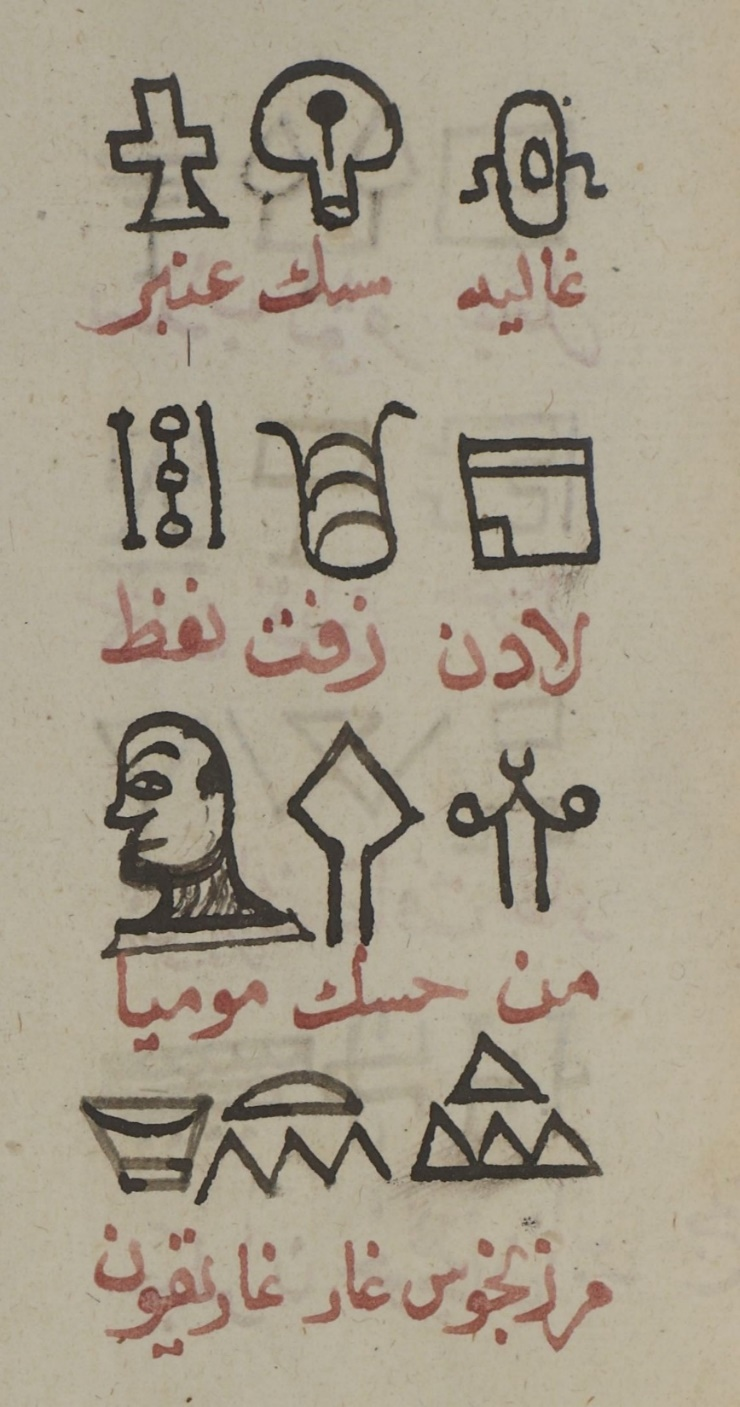 غاليه سك عنبر
لادن زفت نفظ
من حسك موميا
مرزنجوس غار غاريقون